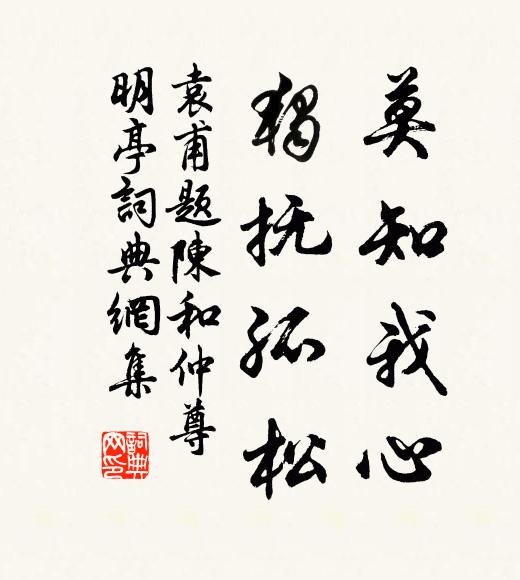 莫知我心
独抚孤松
袁甫题陳和仲尊
明亭詞典網集
詞典
网印